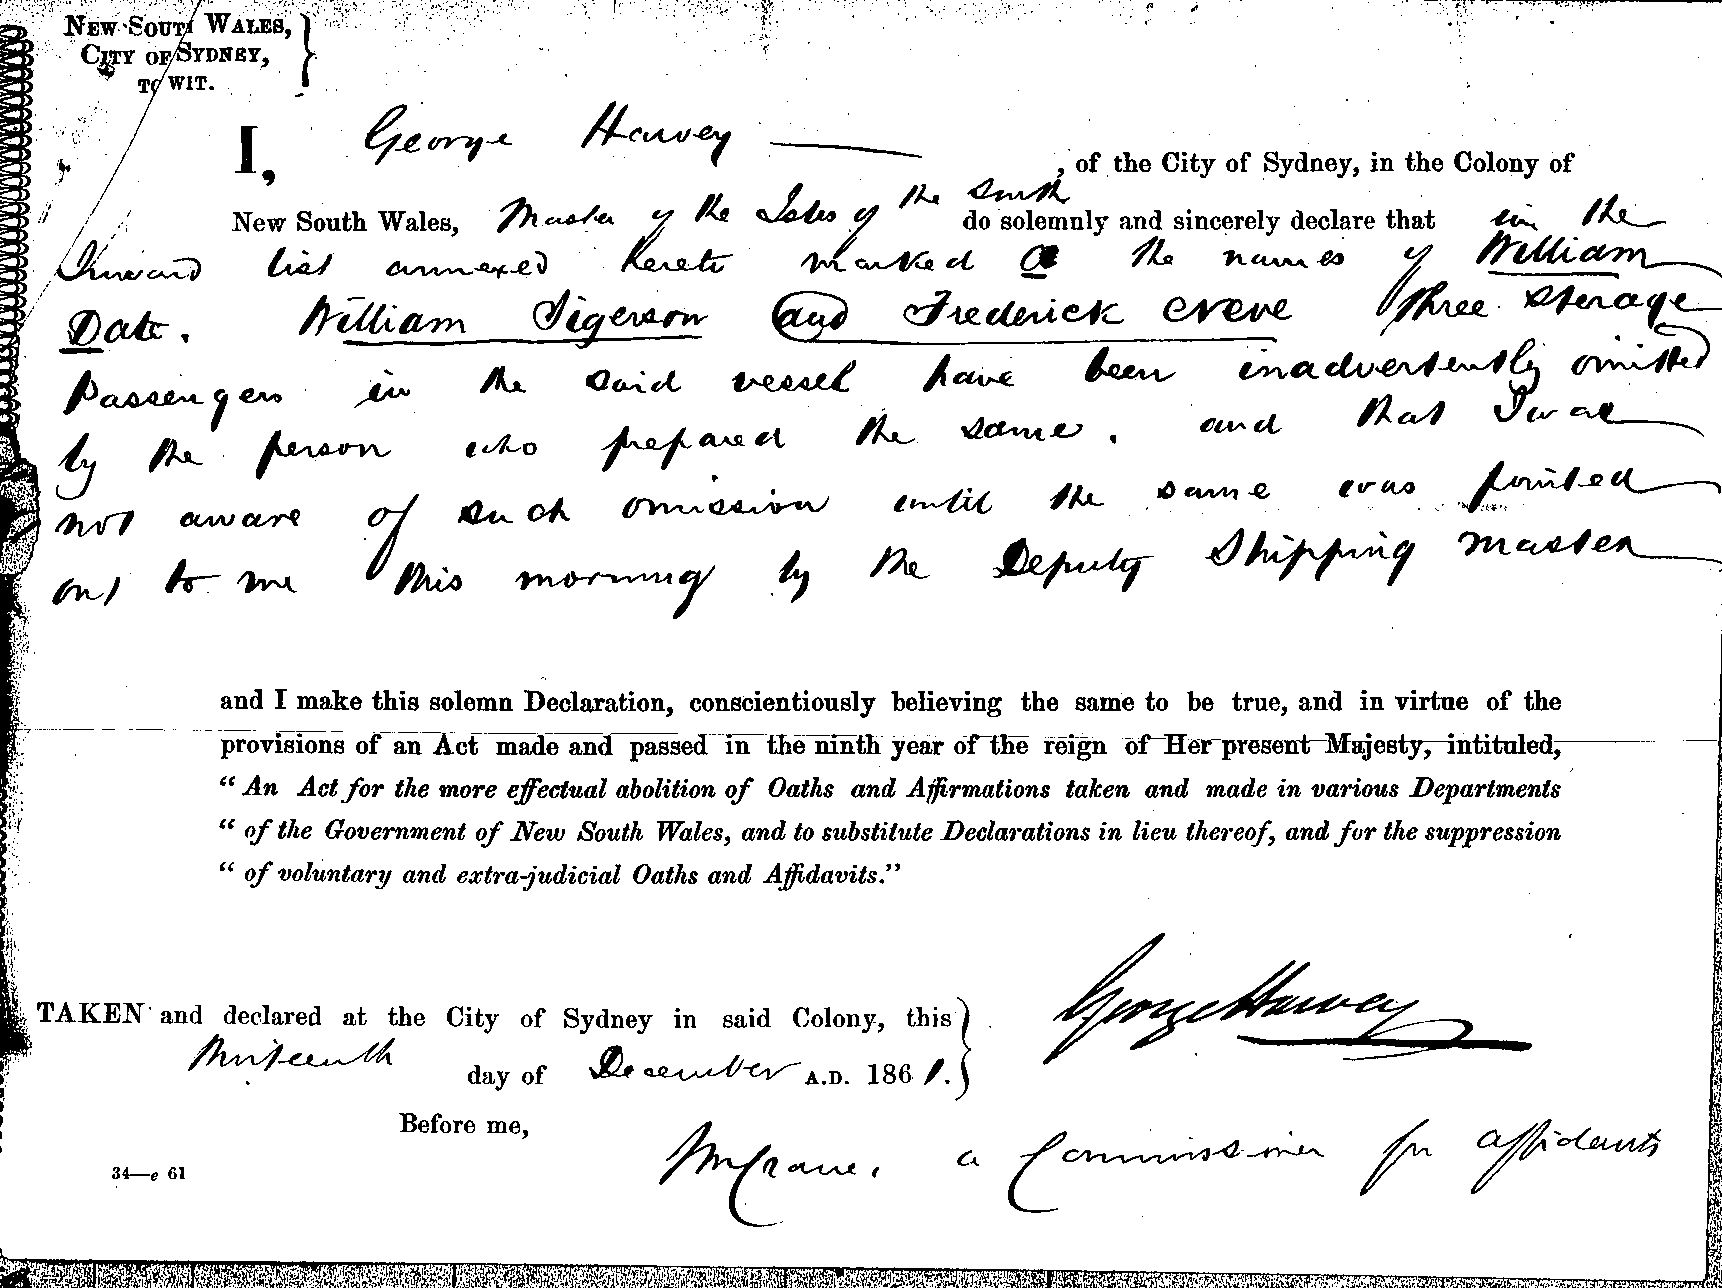 NEW SOUTH WALES,
CITY OF SYDNEY,
TO WIT.
I, George Harvey , of the City of Sydney, in the Colony of
New South Wales, Master of the Isles of the South do solemnly and sincerely declare that in the
Inward list annexed hereto marked a the names of William
Date. William Sigerson and Frederick Creve three sterage
passengers in the said vessel have been inadvertently omitted
by the person who prepared the same. and that I was
not aware of such omission until the same was pointed
out to me this morning by the Deputy Shipping Master
and I make this solemn Declaration, conscientiously believing the same to be true, and in virtue of the
provisions of an Act made and passed in the ninth year of the reign of Her present Majesty, intituled,
“ An Act for the more effectual abolition of Oaths and Affirmations taken and made in various Departments
“ of the Government of New South Wales, and to substitute Declarations in lieu thereof, and for the suppression
“ of voluntary and extra-judicial Oaths and Affidavits.”
George Harvey
TAKEN and declared at the City of Sydney in said Colony, this
thirteenth day of December A.D. 1861.
Before me,
a Commissioner for affidavits
34—e 61